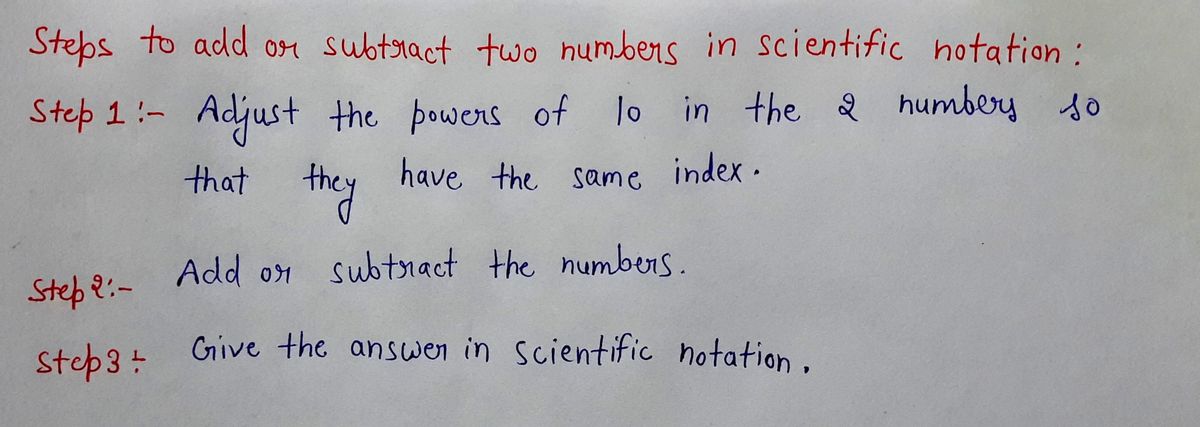 Steps to add or subtract two numbers in scientific notation :
Step 1 :- Adjust the powers of 10 in the 2 numbers so
that they have the same index.
Step 2:- Add or subtract the numbers.
Step 3 :- Give the answer in scientific notation.